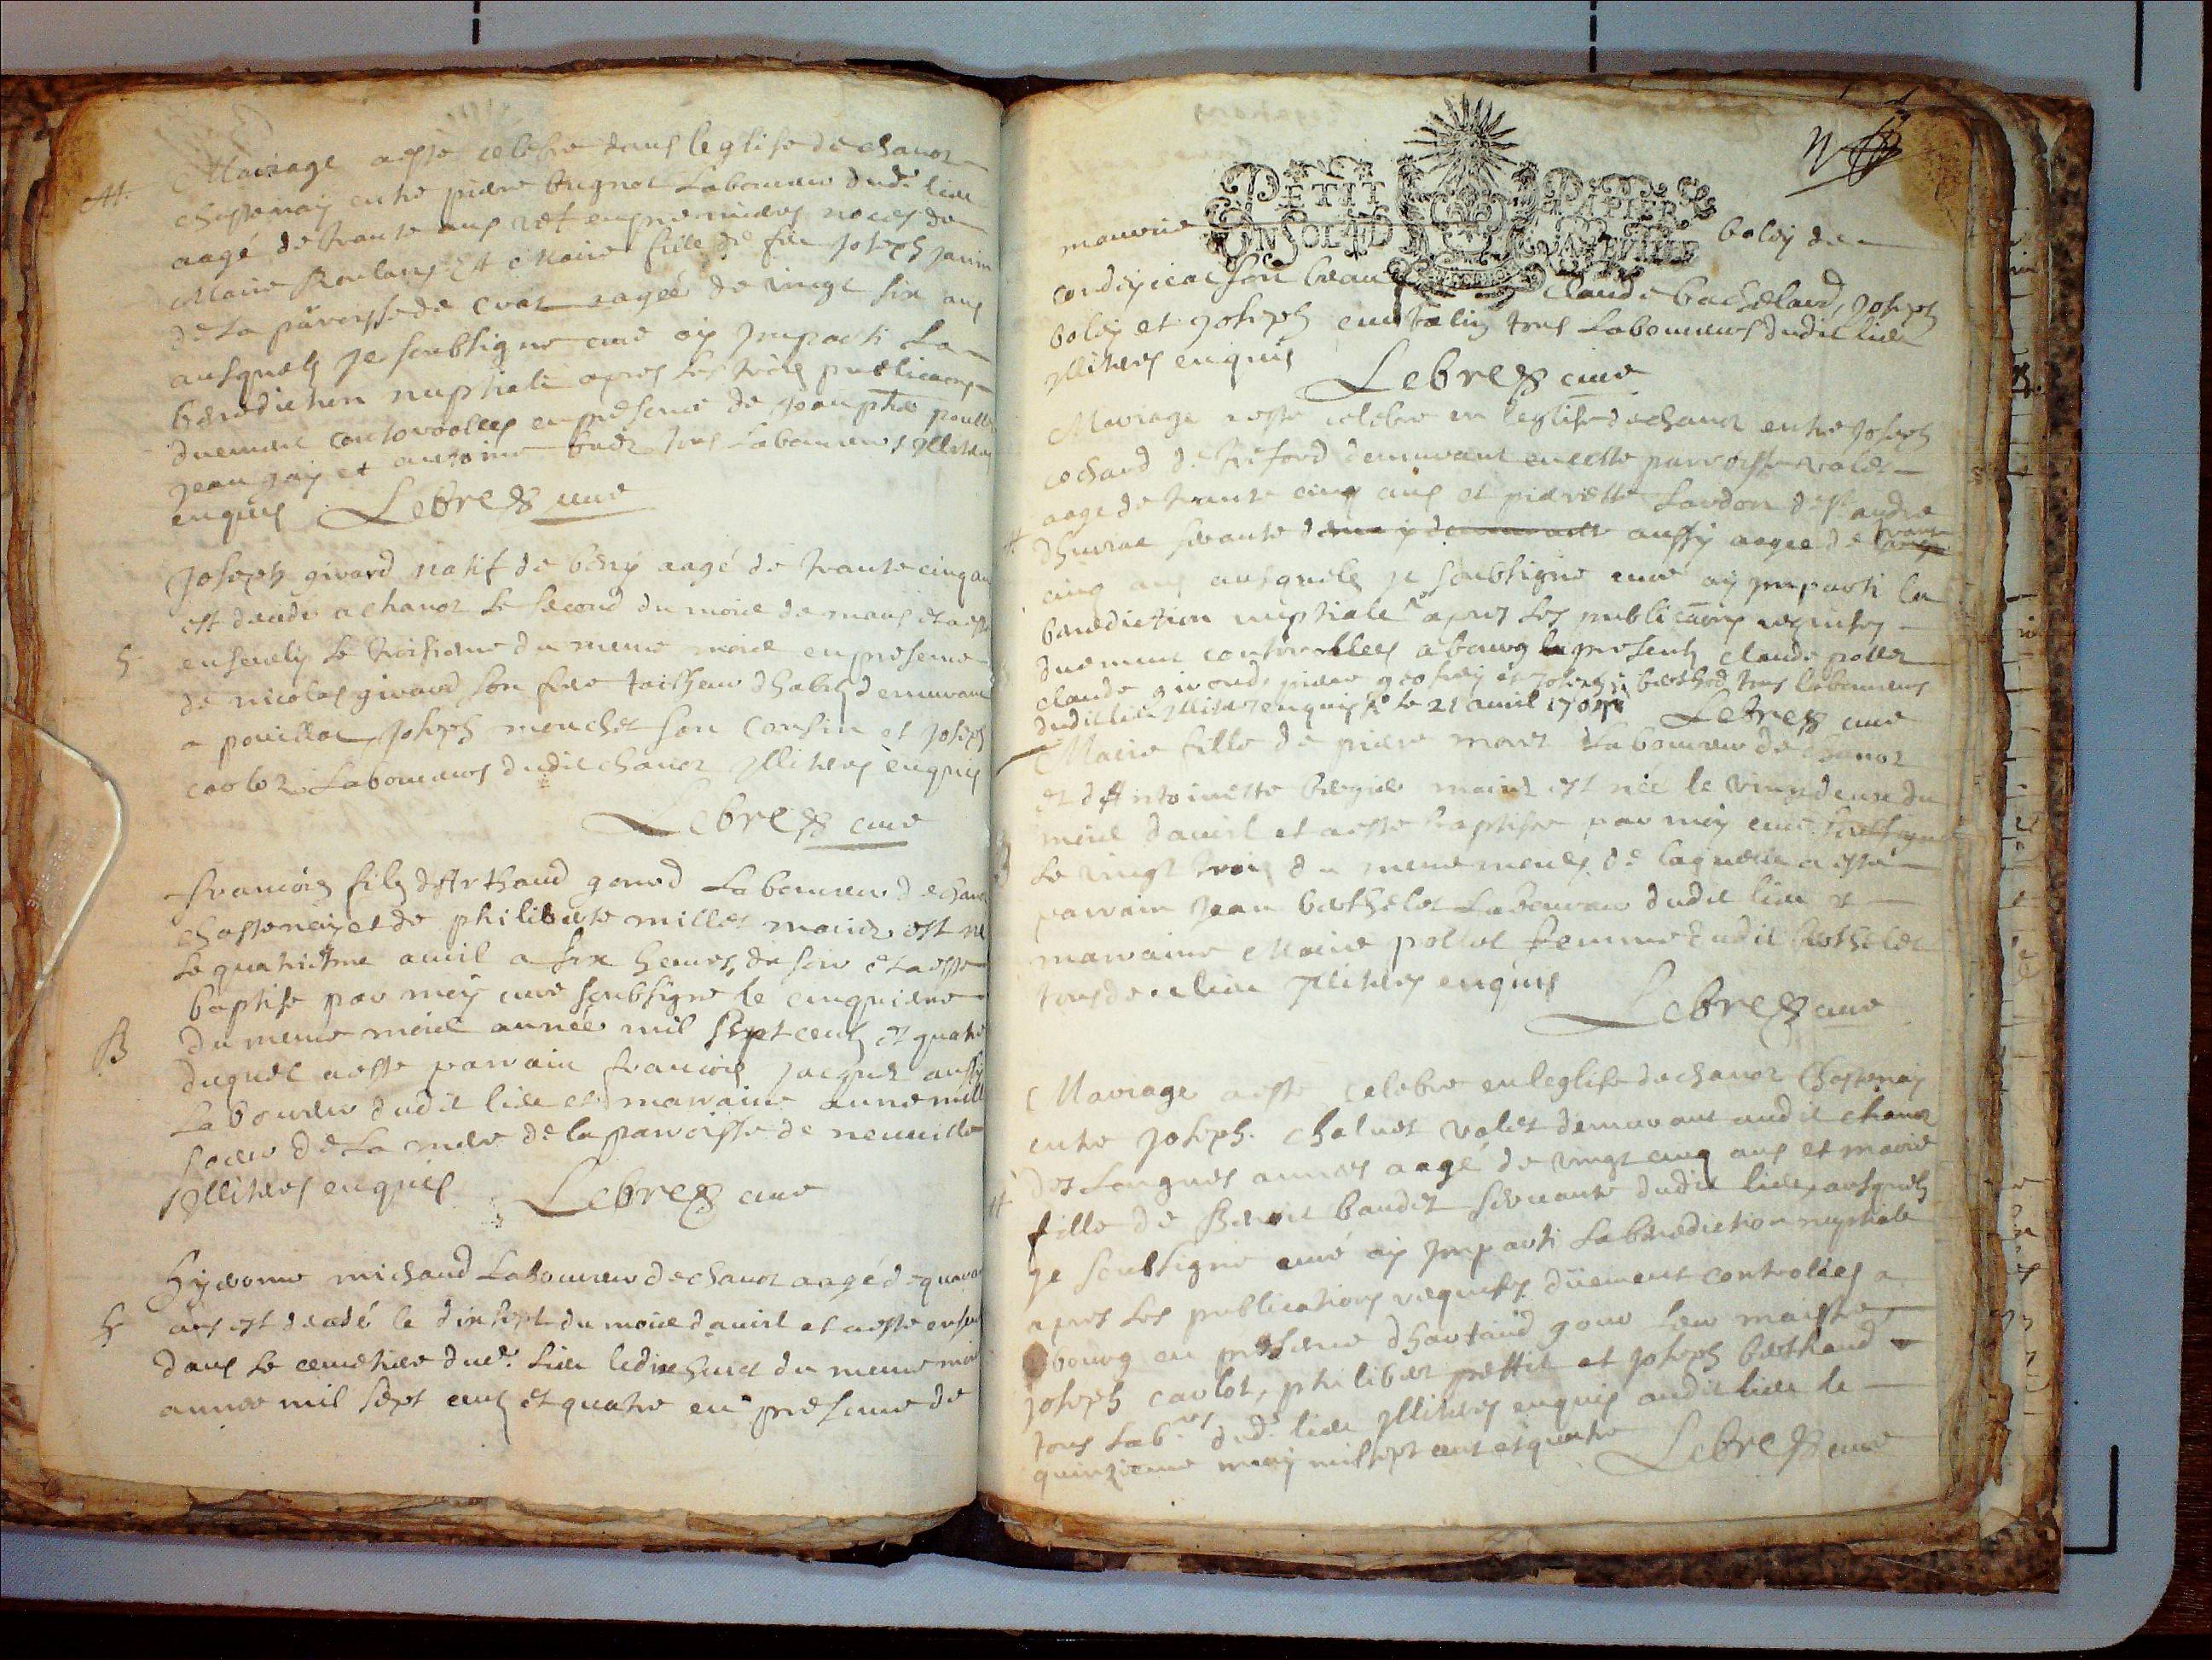 Mariage a esté celebré dans leglise de chanoz
M. chastenay entre piere brignot Laboureur dudt. lieu
aagé de trante ans vef en premieres noces de
Marie Et Marie fille de feu Joseph Janin
de La paroisse de cras aagée de vingt six ans
ausquels Je soubsigne curé ay Imparti La
benediction nuptiale apres les trois publicaons
duement controolees en presence de
Jean gay et antoine tous Laboureurs Illiteres
enquis Lebrez curé
Joseph girard natif de beny aagé de trante cinq ans
est decedé a chanoz Le second du mois de mars et a esté
S ensevely Le troisieme du meme mois en presence
de nicolas girard son frere tailheur dhabits demurant
a pouillat, Joseph mouchet son Cousin et Joseph
carloz Laboureurs dudit chanoz Illiteres enquis
Lebrez curé
francois fils dArthaud gonod Laboureur de chanoz
chastenay et de philiberte millet mariez est né
Le quatrieme avril a six heures du soir et a esté
baptisé par moy curé soubsigné le cinquieme
B du meme mois année mil sept cents et quatre
duquel a esté parrain francois Jacquet aussy
Laboureur dudit lieu et marraine anne millet
soeur de La mere de la parroisse de neuville
Illiteres enquis Lebrez curé
hyerome michaud Laboureur de chanoz aagé de quarante
S ans est decedé le dixsept du mois davril et a esté ensevely
dans Le cemetiere dudt. Lieu le dixhuict du meme mois
année mil sept cents et quatre en presence de
PETIT PAPIER
maurice boley de
condeyciat son beau Claude bachelard, Joseph
boley et Joseph tous Laboureurs dudit lieu
Illiteres enquis
Lebrez curé
Mariage a esté celebré en leglise de chanoz entre Joseph
cochard de treford demurant en cette parroisse valet
aagé de trante cinq ans et pierrette Lardon de st andré
M dhuiriat servante aussy aagée de trante
cinq ans ausquels Je soubsigné curé ay Imparti la
benediction nuptiale apres Les publicaons requises
duement controollees a bourg presents claude pollet
claude giroud, piere geofray et Joseph berthod tous laboureurs
dudit lieu Illiteres enquis Le 21 avril 1704 Lebrez curé
Marie fille de piere morel Laboureur de chanoz
et dAntoinette bergier mariez est née le vingtdeux du
mois davril et a esté baptisée par moy curé soubsigné
B Le vingt trois du meme mois de laquelle a esté
parrain Jean berthelet Laboureur dudit lieu et
marraine Marie pollet femme dudit berthelet
tous de ce lieu Illiteres enquis
Lebrez curé
Mariage a esté celebré en leglise de chanoz Chastenay
entre Joseph chalnet valet demurant audit chanoz
M des Longues années aagé de vingt cinq ans et marie
fille de Benoit baudet servante dudit lieu, ausquels
Je soubsigné curé ay Imparti La benediction nuptiale
apres Les publications requises düement controlees a
bourg en presence dhartaud gonod leur maistre,
Joseph carlot, philibert pettit et Joseph berthaud
tous Labrs. dudt. lieu Illiteres enquis audit lieu le
quinzieme may mil sept cent et quatre Lebrez curé